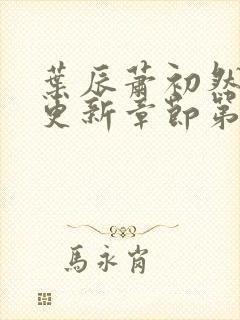 葉辰蕭初然
更新章節第
馬永肖